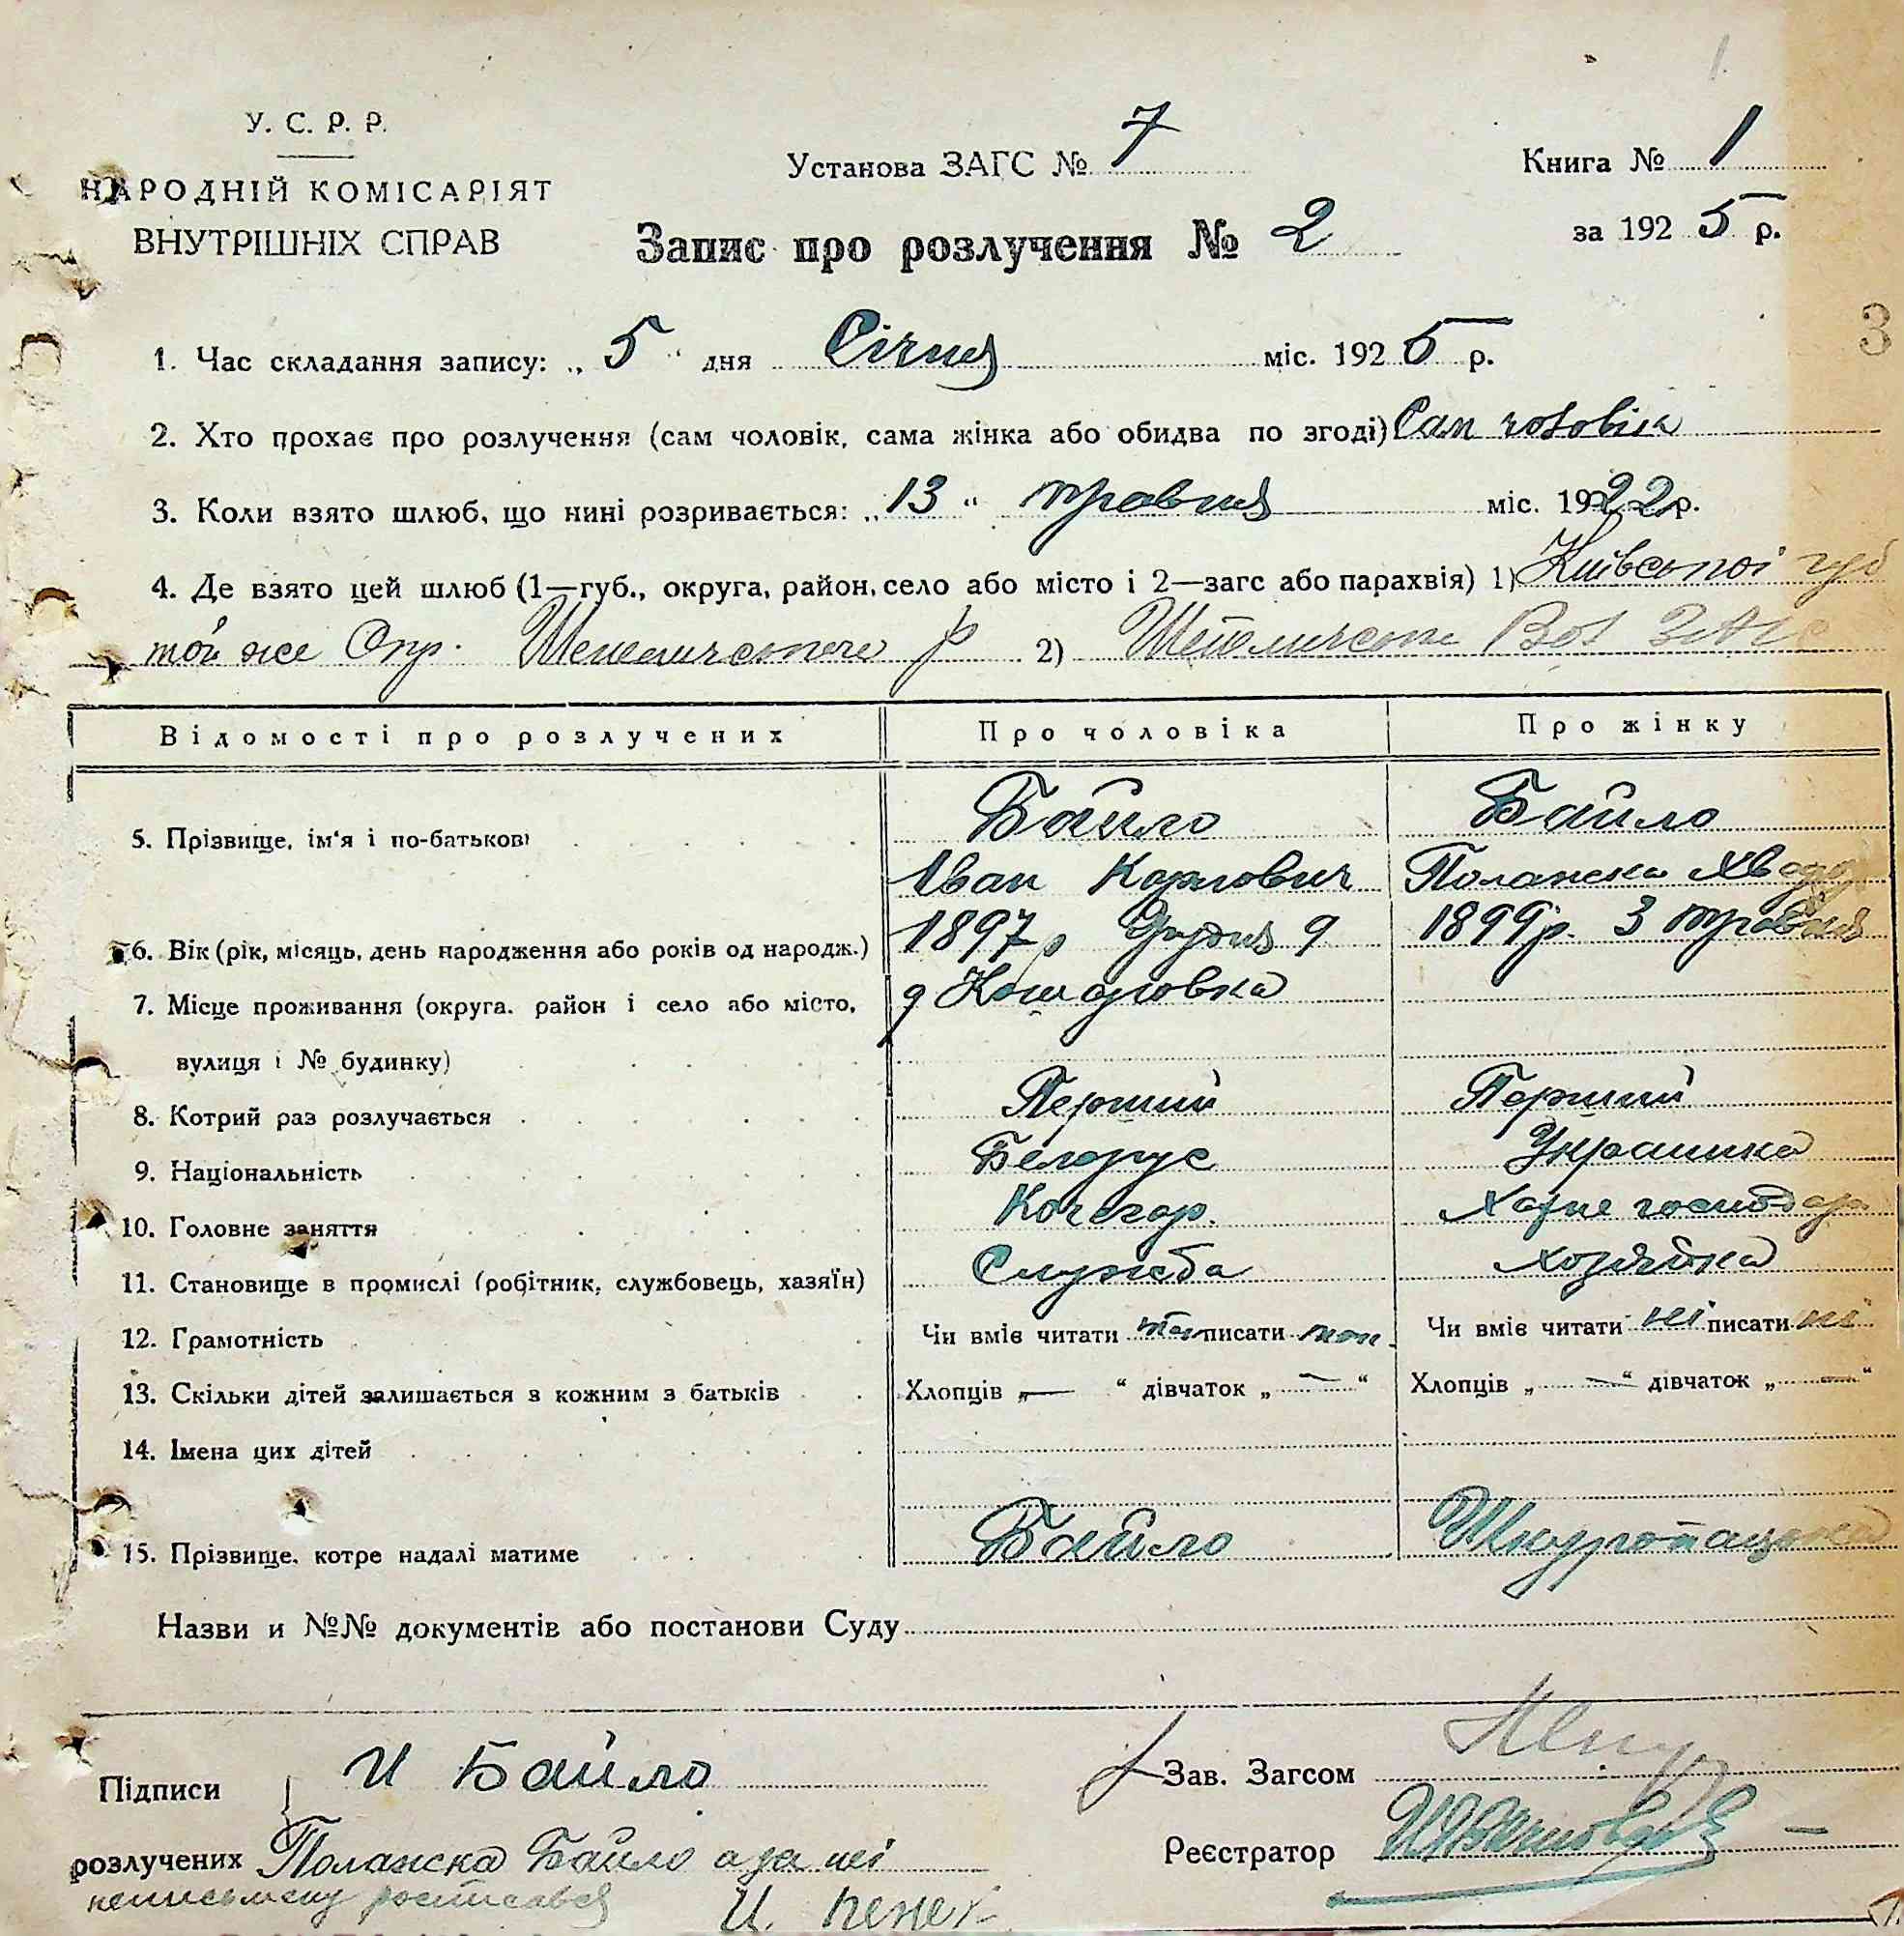 1
У. С. Р. Р.
НАРОДНІЙ КОМІСАРІЯТ
ВНУТРІШНІХ СПРАВ
Установа ЗАГС № 7
Книга № 1
за 1925 р.
Запис про розлучення № 2
3
1. Час складання запису: „ 5 “ дня Січня міс. 1925 р.
2. Хто прохає про розлучення (сам чоловік, сама жінка або обидва по згоді) Сам чоловік
3. Коли взято шлюб, що нині розривається: „ 13 “ травня міс. 1922 р.
4. Де взято цей шлюб (1—губ., округа, район, село або місто і 2—загс або парахвія) 1) Київської губ
той же Окр. р 2) ЗАГС
Відомості про розлучених Про чоловіка Про жінку
5. Прізвище, ім‘я і по-батькові Байло Байло
Іван Карлович Полажка
6. Вік (рік, місяць, день народження або років од народж.) 1897 р Грудня 9 1899 р. 3 травня
7. Місце проживання (округа, район і село або місто, вулиця і № будинку)
8. Котрий раз розлучається Перший Перший
9. Національність Белорус Украинка
10. Головне заняття Кочегар. Хатне господар
11. Становище в промислі (робітник, службовець, хазяїн) Служба хозяйка
12. Грамотність Чи вміє читати так писати так. Чи вміє читати ні писати ні
13. Скільки дітей залишається з кожним з батьків Хлопців „ — “ дівчаток „ — “ Хлопців „ — “ дівчаток „ — “
14. Імена цих дітей
15. Прізвище, котре надалі матиме Байло
Назви и №№ документів або постанови Суду
Підписи И Байло
Зав. Загсом
розлучених Полажка Байло а за неї
Реєстратор
неписьмену росписався